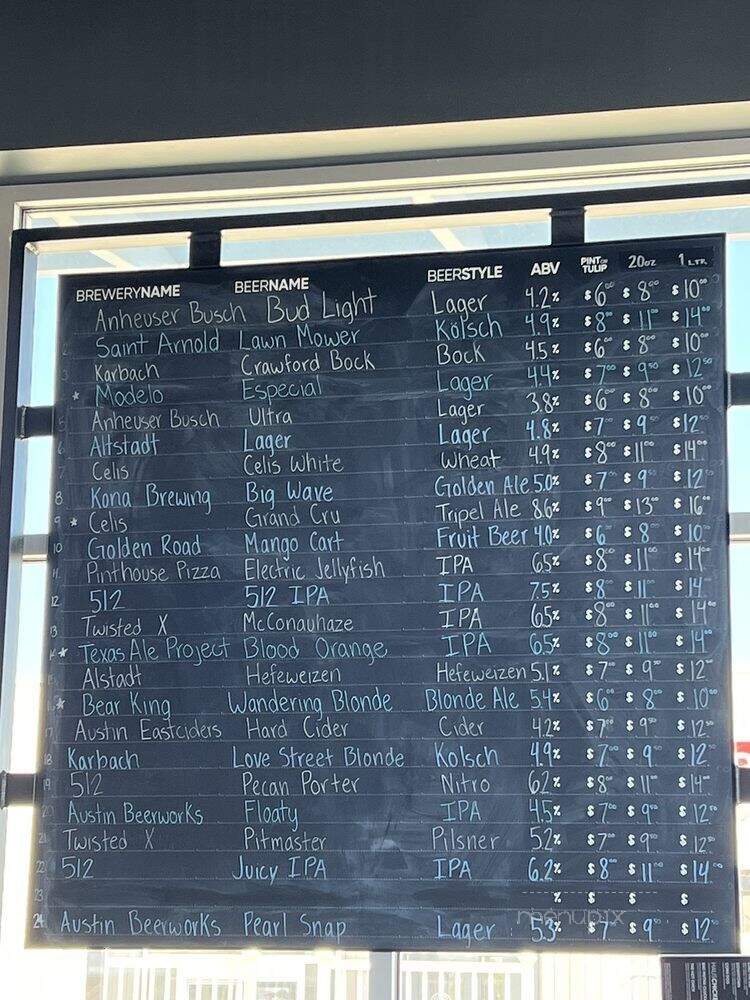 BREWERYNAME BEERNAME BEERSTYLE ABV PINT OR TULIP 20oz 1 LTR.
Anheuser Busch Bud Light Lager 4.2% $6 $8 $10
Saint Arnold Lawn Mower Kölsch 4.9% $8 $11 $14
Karbach Crawford Bock Bock 4.5% $6 $8 $10
Modelo Especial Lager 4.4% $7 $9 50 $12 50
5 Anheuser Busch Ultra Lager 3.8% $6 $8 $10
6 Altstadt Lager Lager 4.8% $7 $9 $12
7 Celis Celis White Wheat 4.9% $8 $11 $14
8 Kona Brewing Big Wave Golden Ale 5.0% $7 $9 $12
9 Celis Grand Cru Tripel Ale 8.6% $9 $13 $16
10 Golden Road Mango Cart Fruit Beer 4.0% $6 $8 $10
11 Pinthouse Pizza Electric Jellyfish IPA 6.5% $8 $11 $14
12 512 512 IPA IPA 7.5% $8 $11 $14
13 Twisted X McConauhaze IPA 6.5% $8 $11 $14
Texas Ale Project Blood Orange IPA 6.5% $8 $11 $14
Alstadt Hefeweizen Hefeweizen 5.1% $7 $9 $12
Bear King Wandering Blonde Blonde Ale 5.4% $6 $8 $10
17 Austin Eastciders Hard Cider Cider 4.2% $7 $9 $12
18 Karbach Love Street Blonde Kolsch 4.9% $7 $9 $12
19 512 Pecan Porter Nitro 6.2% $8 $11 $14
20 Austin Beerworks Floaty IPA 4.5% $7 $9 $12
21 Twisted X Pitmaster Pilsner 5.2% $7 $9 $12
22 512 Juicy IPA IPA 6.2% $8 $11 $14
23 % $ $ $
24 Austin Beerworks Pearl Snap Lager 5.3% $7 $9 $12
menupix